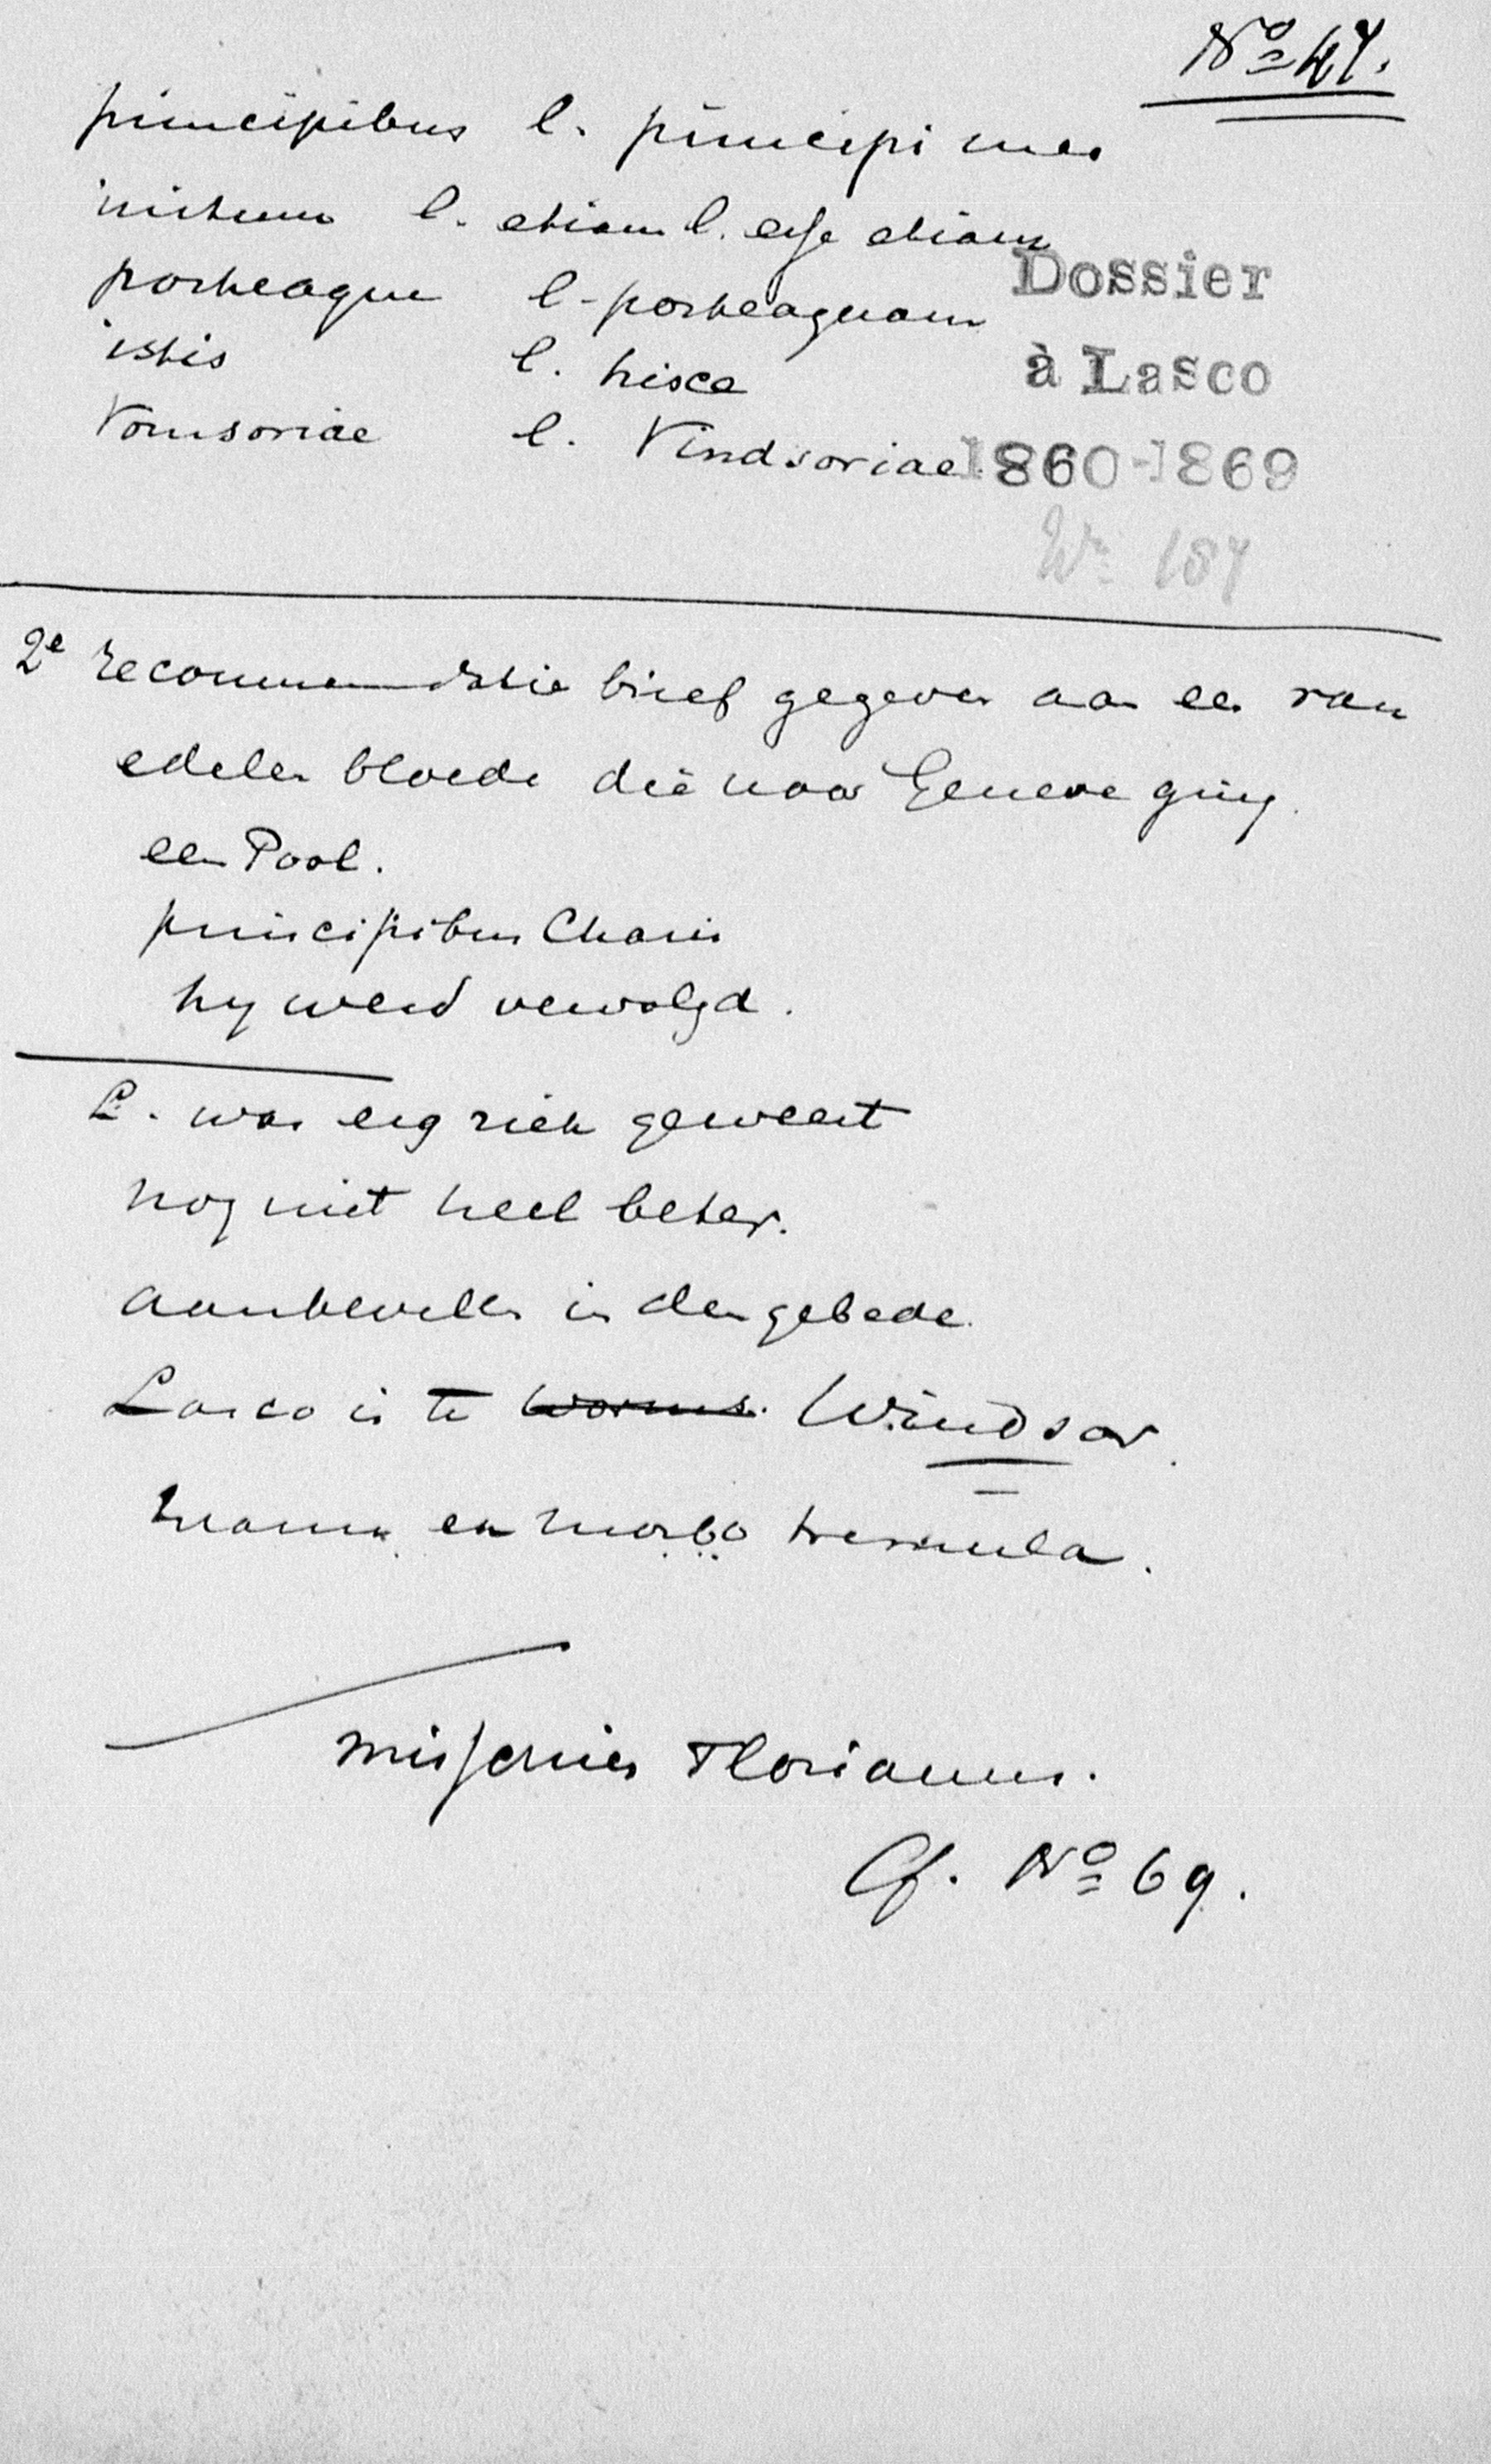 No 47.
principibus l. principi meo
initum l. etiam l. esse etiam
posteaque l. posteaquam
istis l. hisce
Vomsoriae l. Vindsoriae
Dossier
à Lasco
1860-1869
No 187
2e recommendatie brief gegeven aan een van
edelen bloede die naar Geneve ging.
een Pool.
principibus Charis
hy werd vervolgd.
L. was erg ziek geweest
nog niet heel beter.
aanbevelen in den gebede.
Lasco is te Worms. Windsor.
manu ex morbo tremula.
Florianus.
Cf. No 69.